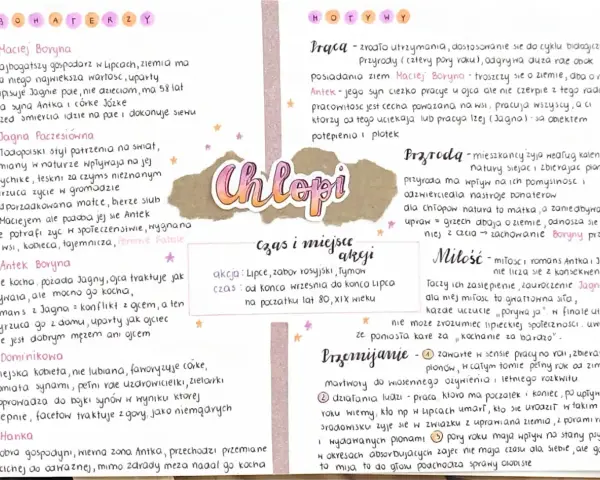 BOHATERZY
Maciej Boryna
najbogatszy gospodarz w Lipcach, ziemia ma
niego największa wartość, uparty
pisuje Jagnie pole, nie dzieciom, ma 58 lat
syna Antka i córkę Józkę
zed śmiercią idzie na pole i dokonuje siewu
Jagna Paczesiówna
młodopolski styl patrzenia na świat,
zmiany w naturze wpływają na jej
psychikę, tęskni za czymś nieznanym
rzuca życie w gromadzie
podporządkowana matce, bierze ślub
Maciejem ale podoba jej się Antek
potrafi żyć w społeczeństwie, wygnana
wsi, kobieca, tajemnicza, femme fatale
Antek Boryna
kocha, pożąda Jagny, ojca traktuje jak
ale mocno go kocha,
romans z Jagną = konflikt z ojcem, a ten
wyrzuca go z domu, uparty jak ojciec
jest dobrym mężem ani ojcem
Dominikowa
wiejska kobieta, nie lubiana, faworyzuje córkę,
pomiata synami, pełni rolę uzdrowicielki, zielarki
doprowadza do bójki synów w wyniku której
ślepnie, facetów traktuje z góry, jako niemądrych
Hanka
dobra gospodyni, wierna żona Antka, przechodzi przemianę
cichej do odważnej, mimo zdrady męża nadal go kocha
Chłopi
czas i miejsce
akcji
akcja: Lipce, zabór rosyjski, Tymów
czas: od końca września do końca Lipca
na początku lat 80, XIX wieku
MOTYWY
Praca - źródło utrzymania, dostosowanie się do cyklu biologicz
Przyrody (cztery pory roku), odgrywa dużą rolę obok
posiadania ziem Maciej Boryna - troszczy się o ziemię, dba o
Antek - jego syn ciężko pracuje u ojca ale nie czerpie z tego rado
pracowitość jest cechą poważaną na wsi, pracują wszyscy, a ci
którzy od tego uciekają lub pracują lżej (Jagna) - są obiektem
potępienia i plotek
Przyroda - mieszkańcy żyją według kalen
natury siejąc i zbierając plon
przyroda ma wpływ na ich pomyślność i
odzwierciedla nastroje bohaterów
dla chłopów natura to matka, a zaniedbywa
upraw = grzech dbają o ziemię, odnoszą się
niej z czcią → zachowanie Boryny prz
Miłość - miłość i romans Antka i J
nie liczą się z konsekwen
łączy ich zaślepienie, zauroczenie Jagn
dla niej miłość to gwałtowna siła,
każde uczucie "porywa ją". w finale ut
nie może zrozumieć lipeckiej społeczności.
że poniosła karę za "kochanie za bardzo".
Przemijanie - ① zawarte w sensie pracy na roli, zbiera
plonów, w całym tomie pełny rok od zim
martwoty do wiosennego ożywienia i letniego rozkwitu
② działania ludzi - praca która ma początek i koniec, po upływ
roku wiemy, kto np w Lipcach umarł, kto się urodził w takim
środowisku żyje się w związku z uprawianą ziemią, z porami r
i wydawanych plonami ③ pory roku mają wpływ na stany psy
w okresach absorbujących zajęć nie ma czasu dla siebie, ale g
to mija to do głosu podchodzą sprawy osobiste